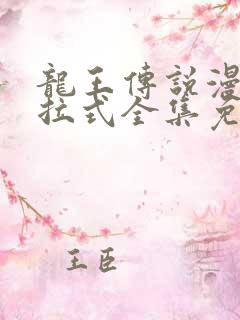 龍王傳說漫
拉式全集免
王臣